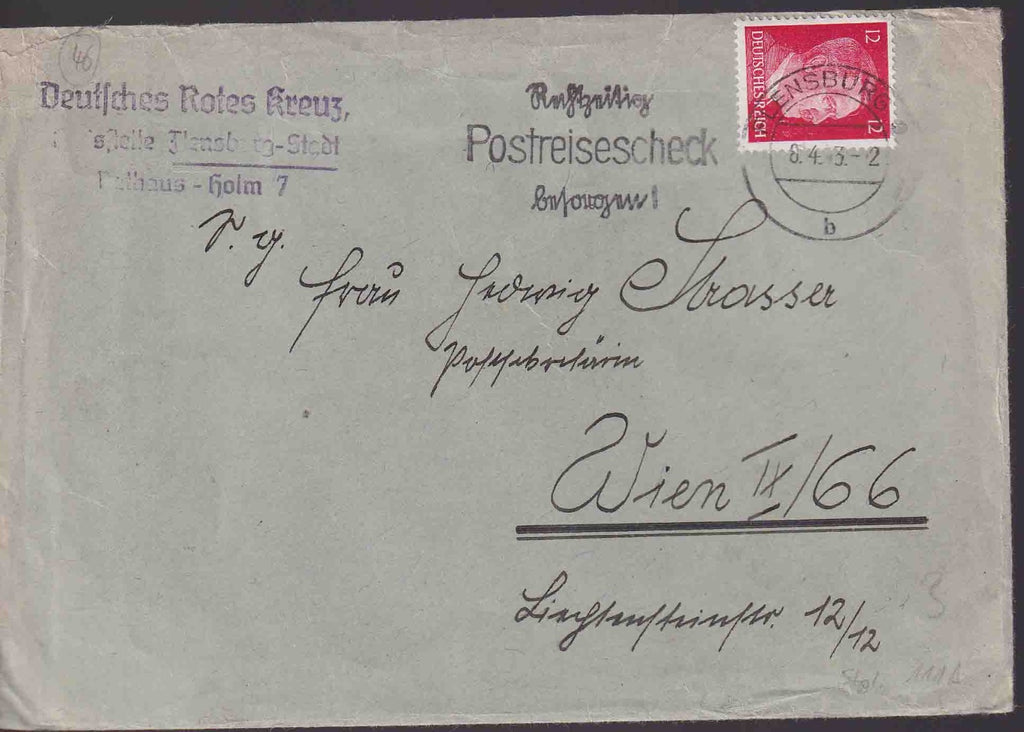 46
Deutsches Rotes Kreuz,
stelle Flensburg-Stadt
Rathaus - Holm 7
Rechtzeitig
Postreisescheck
besorgen!
DEUTSCHES REICH
12 12
ENSBURG
8.4. 3.- 2
b
S. g.
Frau Hedwig Strasser
Postsekretärin
Wien IX/66
Liechtensteinstr. 12/12
3
111A